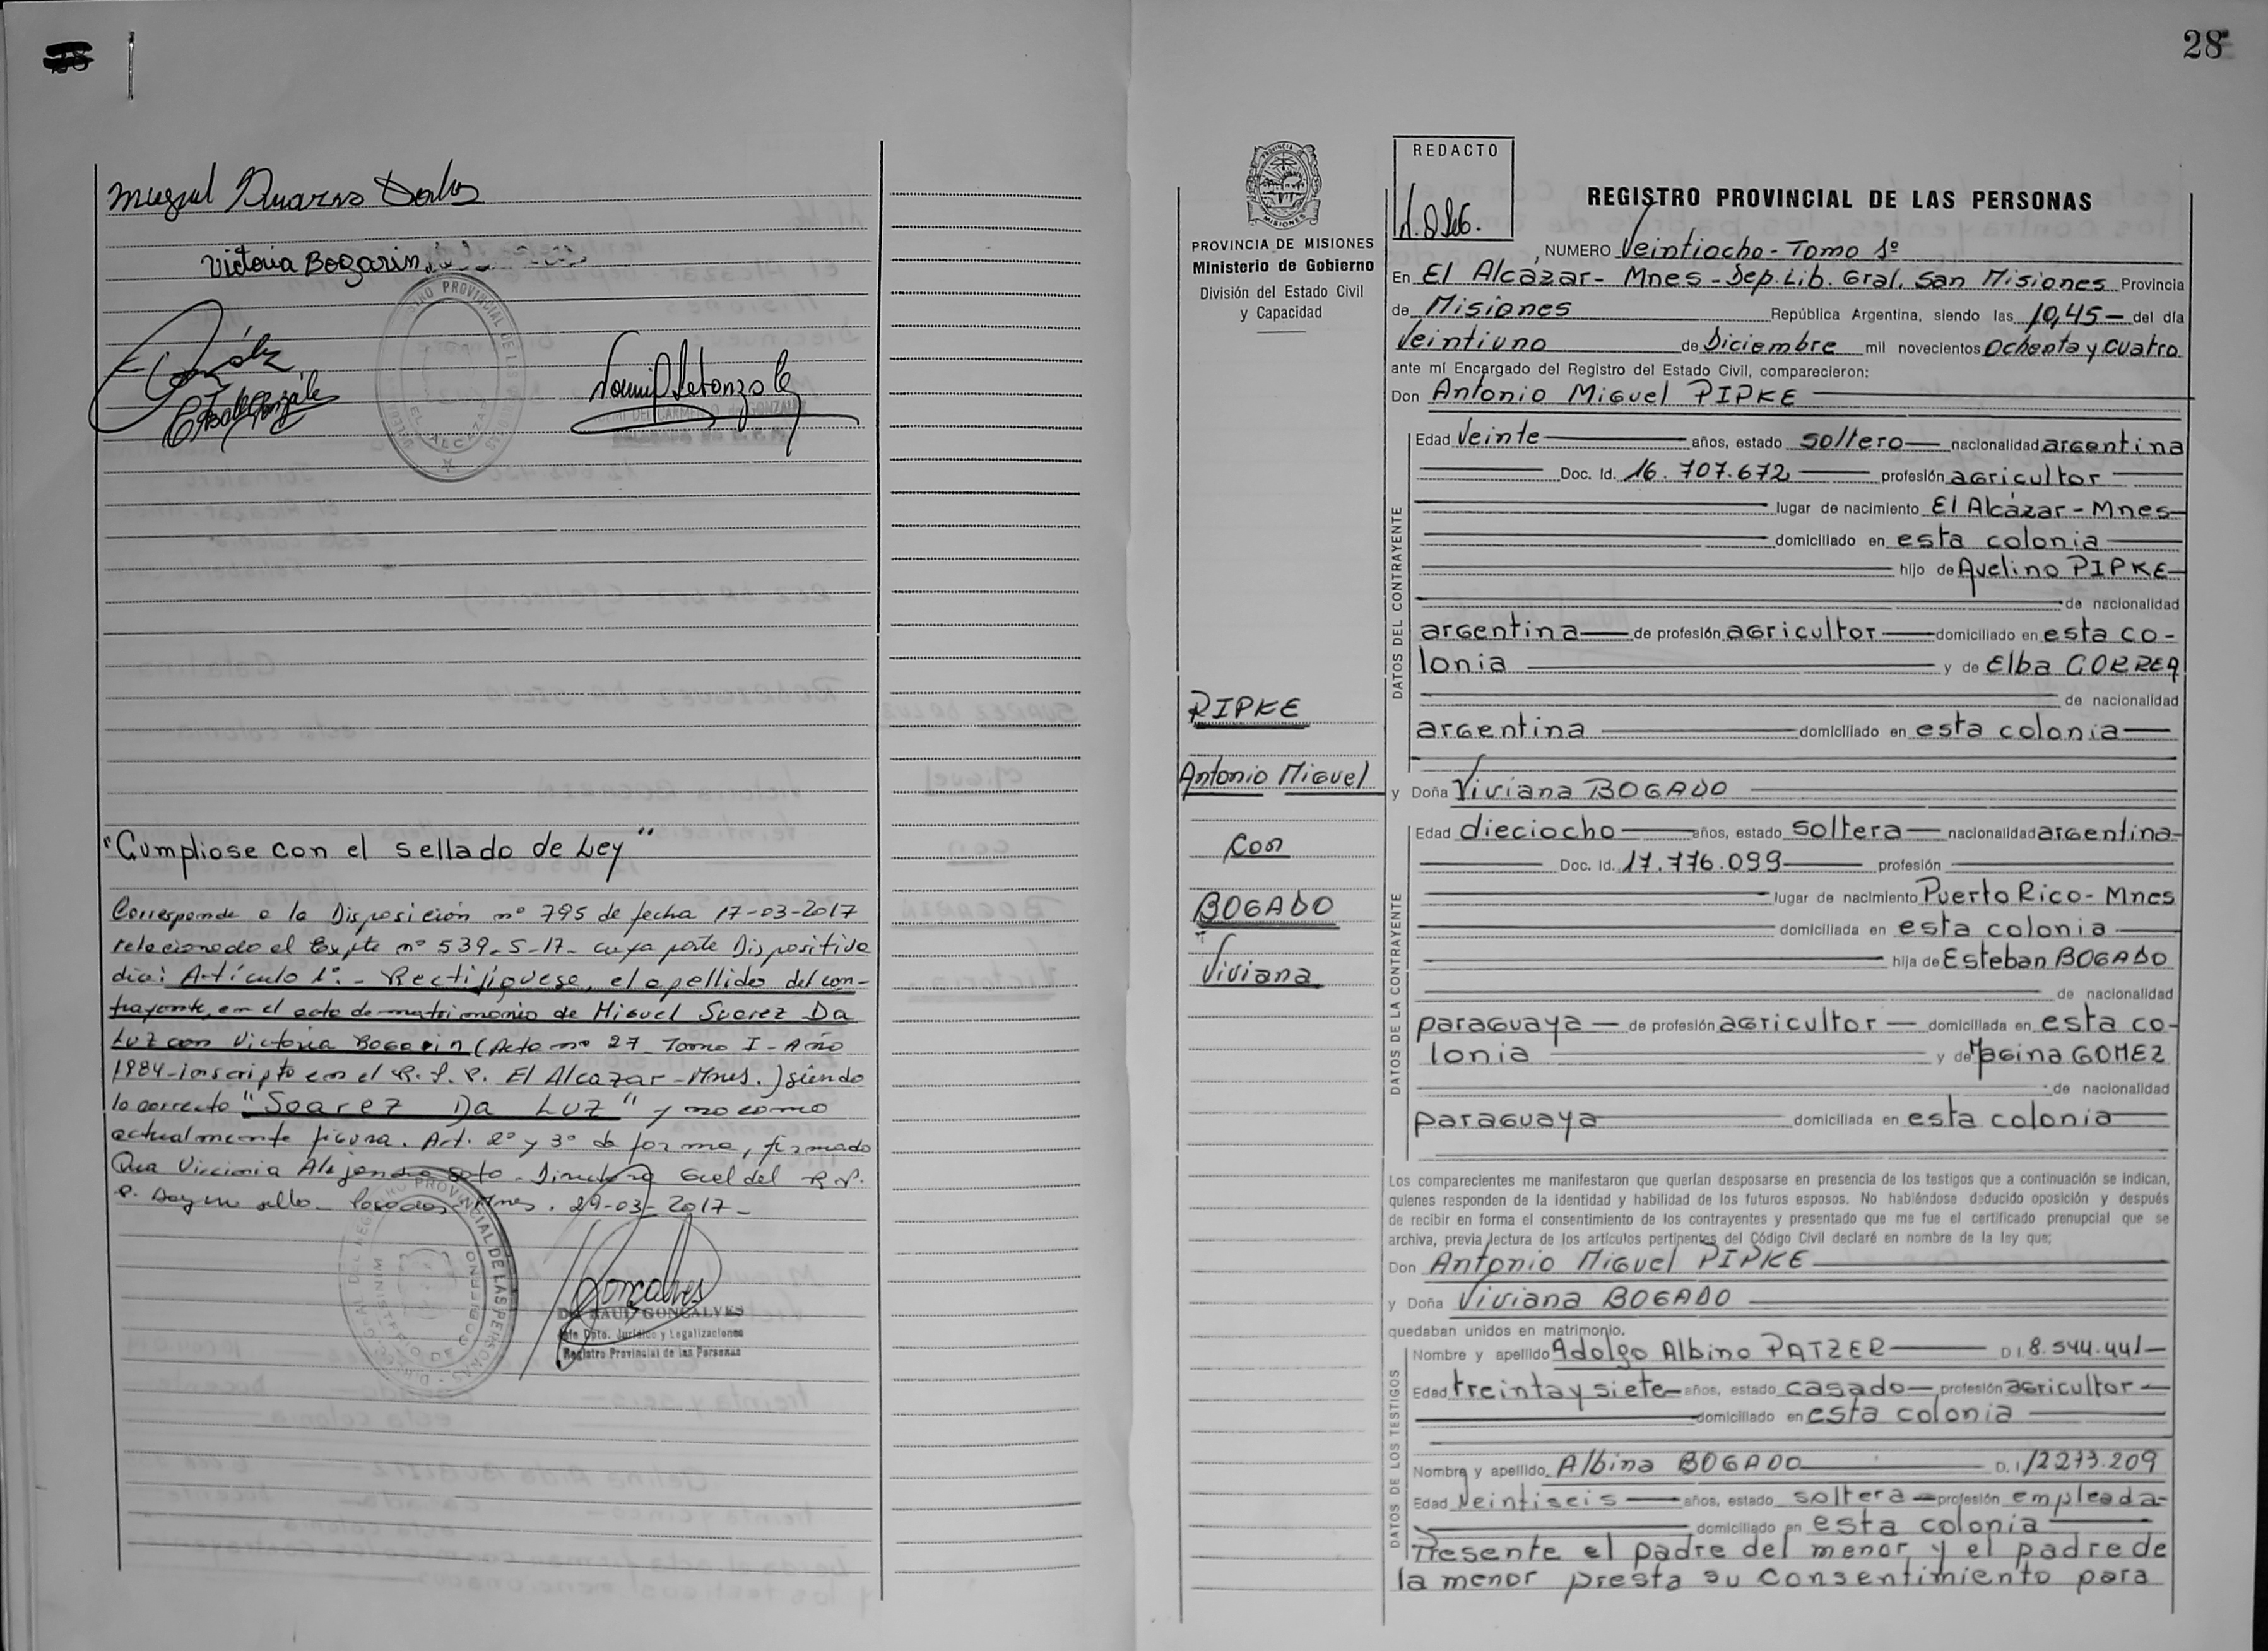 28
Victoria Bogarin
REGISTRO PROVINCIAL DE LAS PERSONAS
EL ALCAZAR
"Cumpliose con el sellado de Ley"
Corresponde a la Disposición nº 795 de fecha 17-03-2017
relacionado al Expte nº 539-S-17- cuya parte Dispositiva
dice: Artículo 1º.- Rectifíquese, el apellido del con-
trayente, en el acta de matrimonio de Miguel Suarez Da
Luz con Victoria Bogarin (Acta nº 27 Tomo I - Año
1984-inscripto en el R.P.P. El Alcazar-Mnes.) siendo
lo correcto "Soarez Da Luz" y no como
actualmente figura. Art. 2º y 3º de forma, firmado
Dra Viccinia Alejandra Soto - Directora Gral del R.P.
P. Hay un sello - Posadas, Mnes. 29-03-2017-
Gonçalves
Dr. RAUL GONCALVES
Jefe Dpto. Jurídico y Legalizaciones
Registro Provincial de las Personas
PROVINCIA DE MISIONES
Ministerio de Gobierno
División del Estado Civil
y Capacidad
RIPKE
Antonio Miguel
Con
BOGADO
Viviana
REDACTO
REGISTRO PROVINCIAL DE LAS PERSONAS
, NUMERO Veintiocho - Tomo 1º
En El Alcázar - Mnes - Dep. Lib. Gral. San Misiones Provincia
de Misiones República Argentina, siendo las 10,45 — del día
Veintiuno de Diciembre mil novecientos ochenta y cuatro
ante mí Encargado del Registro del Estado Civil, comparecieron:
Don Antonio Miguel PIPKE
DATOS DEL CONTRAYENTE
Edad Veinte años, estado soltero nacionalidad argentina
Doc. Id. 16.707.672 profesión agricultor
lugar de nacimiento El Alcázar - Mnes
domiciliado en esta colonia
hijo de Avelino PIPKE
de nacionalidad
argentina de profesión agricultor domiciliado en esta co-
lonia y de Elba CORREA
de nacionalidad
argentina domiciliado en esta colonia
y Doña Viviana BOGADO
DATOS DE LA CONTRAYENTE
Edad dieciocho años, estado soltera nacionalidad argentina
Doc. Id. 17.776.099 profesión
lugar de nacimiento Puerto Rico - Mnes
domiciliada en esta colonia
hija de Esteban BOGADO
de nacionalidad
paraguaya de profesión agricultor domiciliada en esta co-
lonia y de Magina GOMEZ
de nacionalidad
paraguaya domiciliada en esta colonia
Los comparecientes me manifestaron que querían desposarse en presencia de los testigos que a continuación se indican,
quienes responden de la identidad y habilidad de los futuros esposos. No habiéndose deducido oposición y después
de recibir en forma el consentimiento de los contrayentes y presentado que me fue el certificado prenupcial que se
archiva, previa lectura de los artículos pertinentes del Código Civil declaré en nombre de la ley que;
Don Antonio Miguel PIPKE
y Doña Viviana BOGADO
quedaban unidos en matrimonio.
DATOS DE LOS TESTIGOS
Nombre y apellido Adolgo Albino PATZER D I. 8.544.441
Edad treinta y siete años, estado casado profesión agricultor
domiciliado en esta colonia
Nombre y apellido Albina BOGADO D. I. 12273.209
Edad Veintiseis años, estado soltera profesión empleada
domiciliado en esta colonia
Presente el padre del menor y el padre de
la menor presta su consentimiento para